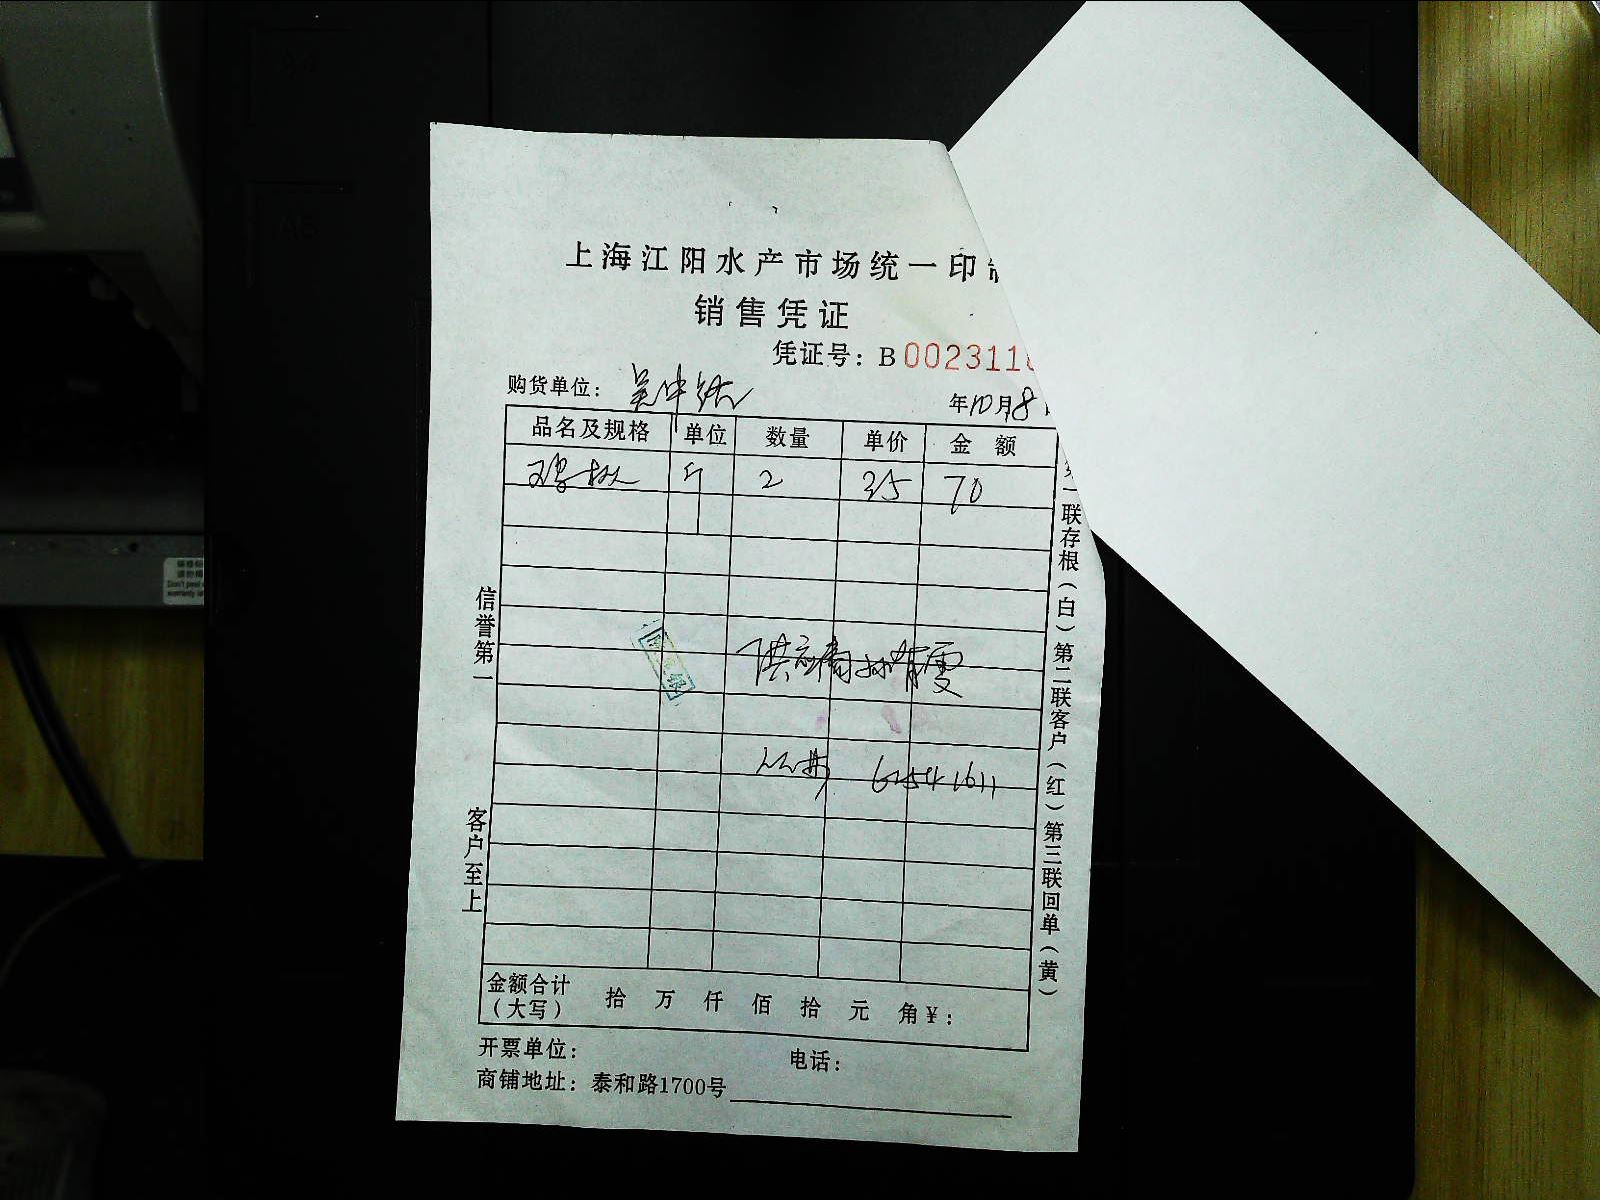 上海江阳水产市场统一印
销售凭证
凭证号：B 0023116
购货单位：
年10月8
品名及规格 单位 数量 单价 金额
斤 2 35 70
信誉第一
客户至上
一联存根（白）第二联客户（红）第三联回单（黄）
62541611
金额合计（大写） 拾 万 仟 佰 拾 元 角 ¥：
开票单位： 电话：
商铺地址：泰和路1700号